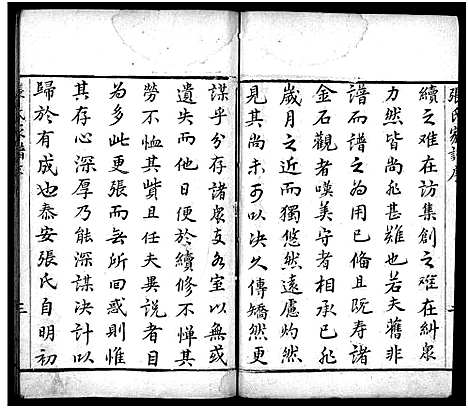 張氏家譜序
續之難在訪集創之難在糾衆
力然皆尚非甚難也若夫舊非
譜而譜之為用已備且既寿諸
金石觀者嘆美守者相承已非
歲月之近而獨悠然遠慮灼然
見其尚未可以决久傳矯然更
謀乎分存諸衆支各室以無或
遺失而他日便於續修不憚其
勞不恤其貲且任夫異說者目
為多此更張而無所回惑則惟
其存心深厚乃能深謀决計以
歸於有成也泰安張氏自明初
張氏家譜序
三